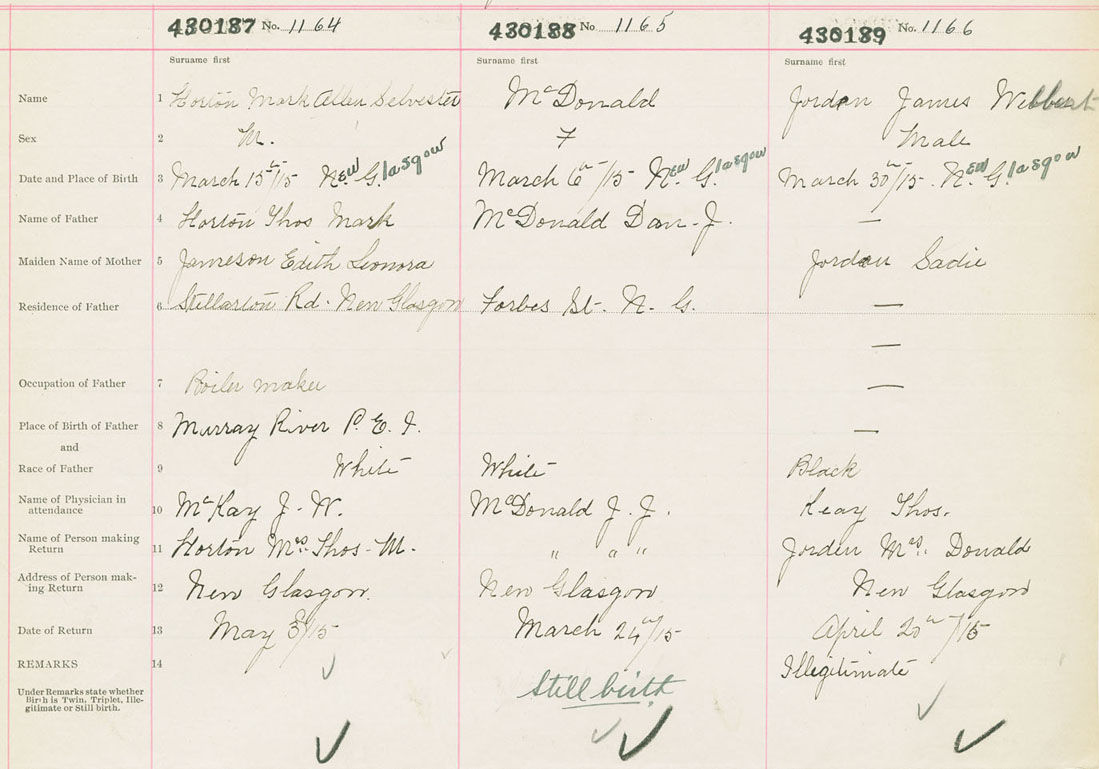 430187 No. 1164 430188 No 1165 430189 No. 1166
Surname first Surname first Surname first
Name 1 Horton Mark Allen Selvester McDonald Jordan James Wilbert
Sex 2 M. F Male
Date and Place of Birth 3 March 15th/15 New Glasgow March 6th/15 New Glasgow March 30th/15. New Glasgow
Name of Father 4 Horton Thos Mark McDonald Dan. J. —
Maiden Name of Mother 5 Jameson Edith Leonora Jordan Sadie
Residence of Father 6 Stellarton Rd. New Glasgow Forbes St. N. G. —
—
Occupation of Father 7 Boiler maker —
Place of Birth of Father 8 Murray River P. E. I. —
and
Race of Father 9 White White Black
Name of Physician in
attendance 10 McKay J. W. McDonald J. J. Keay Thos.
Name of Person making
Return 11 Horton Mrs. Thos. M. " " " Jorden Mrs. Donald
Address of Person mak-
ing Return 12 New Glasgow. New Glasgow New Glasgow
Date of Return 13 May 3/15 March 24th/15 April 20th/15
REMARKS 14 Illegitimate
Under Remarks state whether
Birth is Twin, Triplet, Ille-
gitimate or Still birth. Still birth